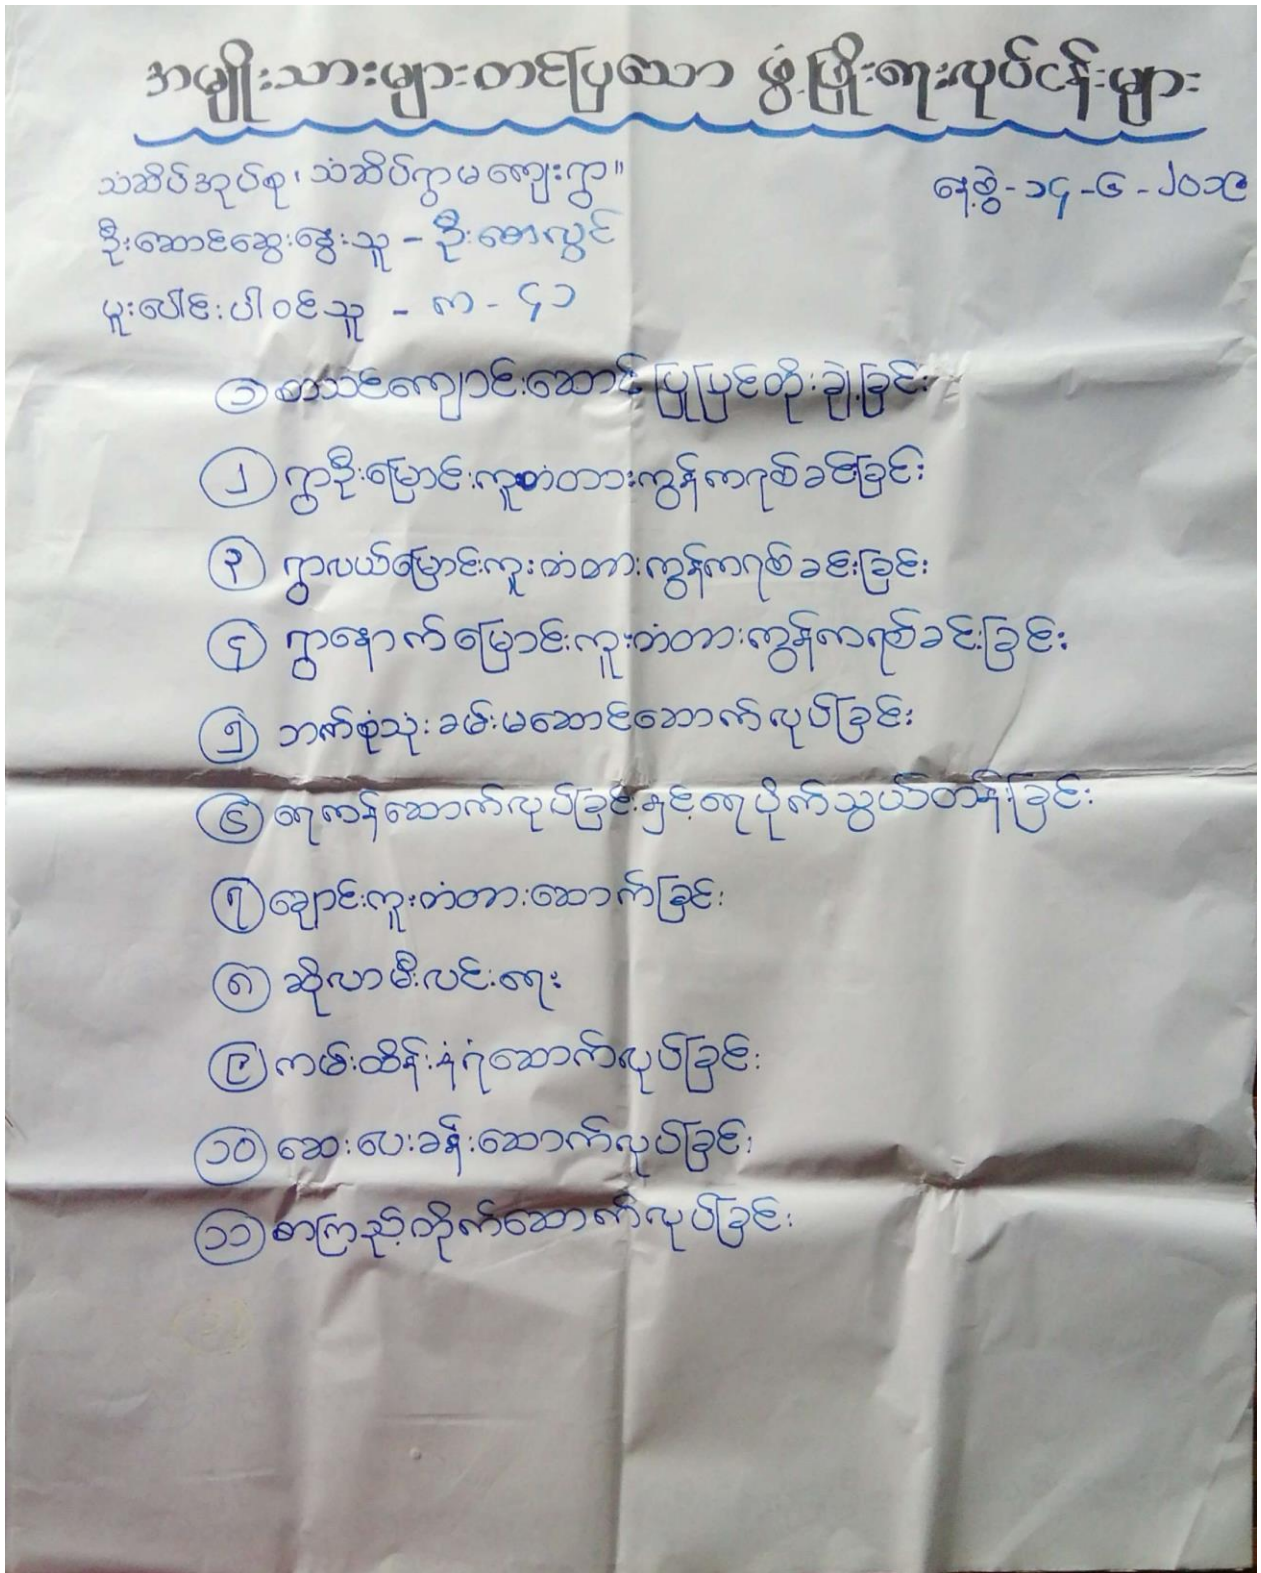 အမျိုးသားများတင်ပြသော ဖွံ့ဖြိုးရေးလုပ်ငန်းများ
သံဆိပ်အုပ်စု၊ သံဆိပ်ရွာမကျေးရွာ။ နေ့စွဲ-၁၄-၆-၂၀၁၉
ဦးဆောင်ဆွေးနွေးသူ - ဦးစောလွင်
ပူးပေါင်းပါဝင်သူ - က - ၄၁
၁ စာသင်ကျောင်းဆောင်ပြုပြင်တိုးချဲ့ခြင်း
၂ ရွာဦးမြောင်းကူးတံတားကွန်ကရစ်ခင်းခြင်း
၃ ရွာလယ်မြောင်းကူးတံတားကွန်ကရစ်ခင်းခြင်း
၄ ရွာနောက်မြောင်းကူးတံတားကွန်ကရစ်ခင်းခြင်း
၅ ဘက်စုံသုံးခမ်းမဆောင်ဆောက်လုပ်ခြင်း
၆ ရေကန်ဆောက်လုပ်ခြင်းနှင့်ရေပိုက်သွယ်တန်းခြင်း
၇ ချောင်းကူးတံတားဆောက်ခြင်း
၈ ဆိုလာမီးလင်းရေး
၉ ကမ်းထိန်းနံရံဆောက်လုပ်ခြင်း
၁၀ ဆေးပေးခန်းဆောက်လုပ်ခြင်း
၁၁ စာကြည့်တိုက်ဆောက်လုပ်ခြင်း